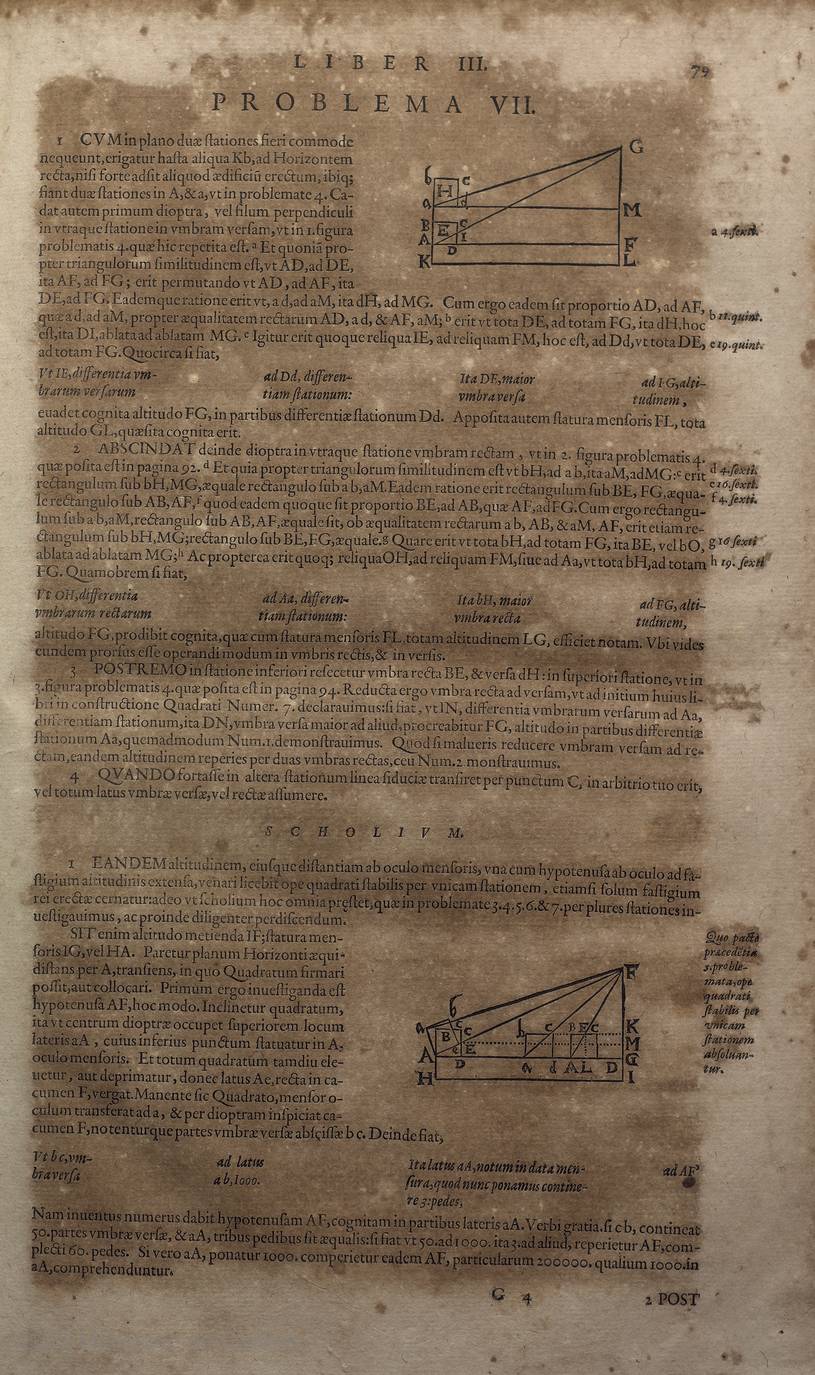 LIBER III. 79
PROBLEMA VII.
1 CVM in plano duæ stationes fieri commode
nequeunt, erigatur hasta aliqua Kb, ad Horizontem
recta, nisi forte adsit aliquod ædificiũ erectum, ibiq;
fiant duæ stationes in A, & a, vt in problemate 4. Ca-
dat autem primum dioptra, vel filum perpendiculi
in vtraque statione in vmbram versam, vt in 1. figura
problematis 4. quæ hic repetita est. ª Et quoniã pro-
pter triangulorum similitudinem est, vt AD, ad DE,
ita AF, ad FG; erit permutando vt AD, ad AF, ita
DE, ad FG. Eademque ratione erit vt, a d, ad aM, ita dH, ad MG. Cum ergo eadem sit proportio AD, ad AF,
quæ a d, ad aM, propter æqualitatem rectarum AD, a d, & AF, aM; ᵇ erit vt tota DE, ad totam FG, ita dH, hoc
est, ita DI, ablata ad ablatam MG. ᶜ Igitur erit quoque reliqua IE, ad reliquam FM, hoc est, ad Dd, vt tota DE,
ad totam FG. Quocirca si fiat,
a 4. sexti.
b 11. quint.
c 19. quint.
Vt IE, differentia vm- ad Dd, differen- Ita DE, maior ad FG, alti-
brarum versarum tiam stationum: vmbra versa tudinem,
euadet cognita altitudo FG, in partibus differentiæ stationum Dd. Apposita autem statura mensoris FL, tota
altitudo GL, quæsita cognita erit.
2 ABSCINDAT deinde dioptra in vtraque statione vmbram rectam, vt in 2. figura problematis 4.
quæ posita est in pagina 92. ᵈ Et quia propter triangulorum similitudinem est vt bH, ad a b, ita aM, ad MG: ᵉ erit
rectangulum sub bH, MG, æquale rectangulo sub a b, aM. Eadem ratione erit rectangulum sub BE, FG, æqua-
le rectangulo sub AB, AF, ᶠ quod eadem quoque sit proportio BE, ad AB, quæ AF, ad FG. Cum ergo rectangu-
lum sub a b, aM, rectangulo sub AB, AF, æquale sit, ob æqualitatem rectarum a b, AB, & aM, AF, erit etiam re-
ctangulum sub bH, MG; rectangulo sub BE, FG, æquale. ᵍ Quare erit vt tota bH, ad totam FG, ita BE, vel bO,
ablata ad ablatam MG; ʰ Ac propterea erit quoq; reliqua OH, ad reliquam FM, siue ad Aa, vt tota bH, ad totam
FG. Quamobrem si fiat,
d 4. sexti.
e 16. sexti.
f 4. sexti.
g 16 sexti
h 19. sexti
Vt OH, differentia ad Aa, differen- Ita bH, maior ad FG, alti-
vmbrarum rectarum tiam stationum: vmbra recta tudinem,
altitudo FG, prodibit cognita, quæ cum statura mensoris FL, totam altitudinem LG, efficiet notam. Vbi vides
eundem prorsus esse operandi modum in vmbris rectis, & in versis.
3 POSTREMO in statione inferiori resecetur vmbra recta BE, & versa dH: in superiori statione, vt in
3. figura problematis 4. quæ posita est in pagina 94. Reducta ergo vmbra recta ad versam, vt ad initium huius li-
bri in constructione Quadrati Numer. 7. declarauimus: si fiat, vt IN, differentia vmbrarum versarum ad Aa,
differentiam stationum, ita DN, vmbra versa maior ad aliud, procreabitur FG, altitudo in partibus differentiæ
stationum Aa, quemadmodum Num. 1. demonstrauimus. Quod si malueris reducere vmbram versam ad re-
ctam, eandem altitudinem reperies per duas vmbras rectas, ceu Num. 2 monstrauimus.
4 QVANDO fortasse in altera stationum linea fiduciæ transiret per punctum C, in arbitrio tuo erit,
vel totum latus vmbræ versæ, vel rectæ assumere.
SCHOLIVM.
1 EANDEM altitudinem, eiusque distantiam ab oculo mensoris, vna cum hypotenusa ab oculo ad fa-
stigium altitudinis extensa, venari licebit ope quadrati stabilis per vnicam stationem, etiamsi solum fastigium
rei erectæ cernatur: adeo vt scholium hoc omnia prestet, quæ in problemate 3. 4. 5. 6. & 7. per plures stationes in-
uestigauimus, ac proinde diligenter perdiscendum.
SIT enim altitudo metienda IF; statura men-
soris IG, vel HA. Paretur planum Horizonti æqui-
distans per A, transiens, in quo Quadratum firmari
possit, aut collocari. Primum ergo inuestiganda est
hypotenusa AF, hoc modo. Inclinetur quadratum,
ita vt centrum dioptræ occupet superiorem locum
lateris aA, cuius inferius punctum statuatur in A,
oculo mensoris. Et totum quadratum tamdiu ele-
uetur, aut deprimatur, donec latus Ac, recta in ca-
cumen F, vergat. Manente sic Quadrato, mensor o-
culum transferat ad a, & per dioptram inspiciat ca-
cumen F, notenturque partes vmbræ versæ abscissæ b c. Deinde fiat,
Quo pacto
præcedētia
5. proble-
mata, ope
quadrati
stabilis per
vnicam
stationem
absoluan-
tur.
Vt b c, vm- ad latus Ita latus aA, notum in data men- ad AF?
bra versa a b, 1000. sura, quod nunc ponamus contine-
re 3. pedes,
Nam inuentus numerus dabit hypotenusam AF, cognitam in partibus lateris aA. Verbi gratia. si c b, contineat
50. partes vmbræ versæ, & aA, tribus pedibus sit æqualis: si fiat vt 50. ad 1000. ita 3. ad aliud, reperietur AF, com-
plecti 60. pedes. Si vero aA, ponatur 1000. comperietur eadem AF, particularum 200000. qualium 1000. in
aA, comprehenduntur.
G 4 2 POST